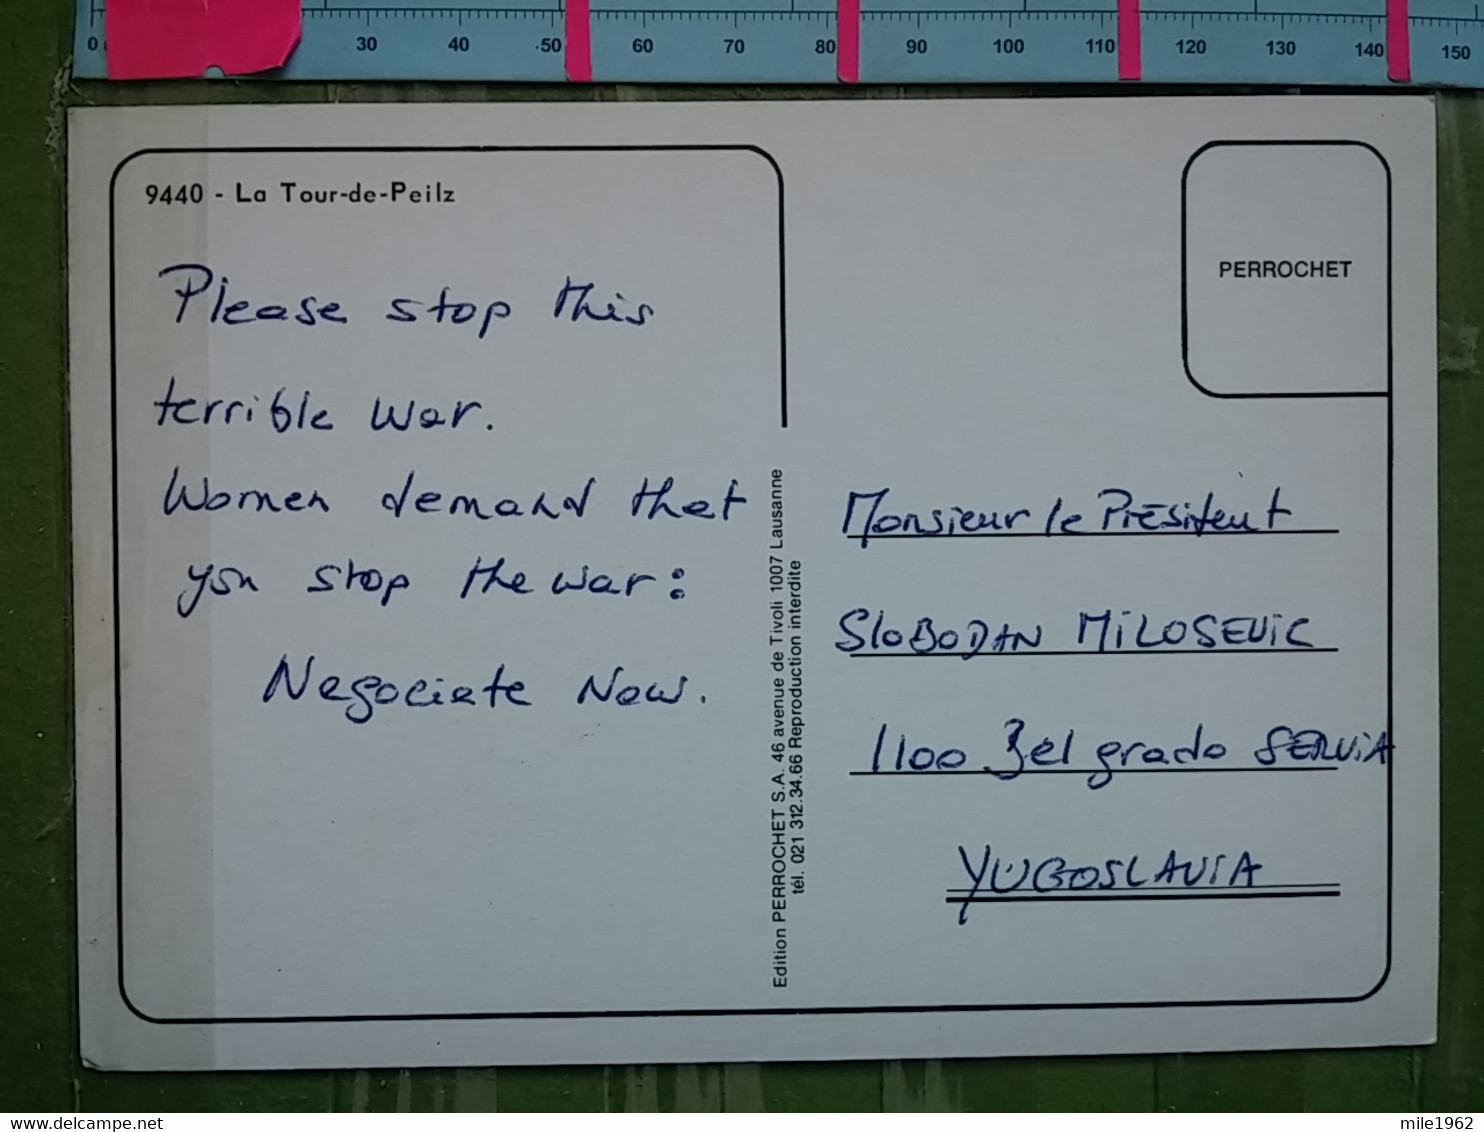 0 30 40 50 60 70 80 90 100 110 120 130 140 150
9440 - La Tour-de-Peilz
PERROCHET
Please stop this
terrible war.
Women demand that
you stop the war:
Negociate Now.
Edition PERROCHET S.A. 46 avenue de Tivoli 1007 Lausanne
tél. 021 312.34.66 Reproduction interdite
Monsieur le Président
SLOBODAN MILOSEVIC
1100 Belgrado SERVIA
YUGOSLAVIA
mile1962